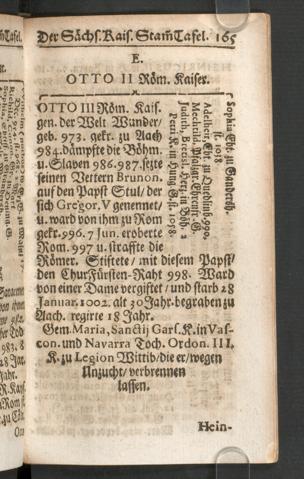 Der Sächs. Kais. Stam̃Tafel. 165
E.
OTTO II Röm. Kaiser.
OTTO III Röm. Kais.
gen. der Welt Wunder/
geb. 973. gekr. zu Aach
984. dämpfte die Böhm.
u. Slaven 986. 987. sezte
seinen Vettern Brunon.
auf den Papst Stul/ der
sich Gregor. V genennet/
u. ward von ihm zu Rom
gekr. 996. 7 Jun. eroberte
Rom. 997 u. straffte die
Römer. Stiftete/ mit diesem Papst/
den ChurFürsten-Raht 998. Ward
von einer Dame vergiftet/ und starb 28
Januar. 1002. alt 30 Jahr. begraben zu
Aach. regirte 18 Jahr.
Gem. Maria, Sanctij Gars. K. in Vas-
con. und Navarra Toch. Ordon. III.
K. zu Legion Wittib/ die er/ wegen
Unzucht/ verbrennen
lassen.
Hein-
Sophia Ebt. zu Gandersh.
st. 1038
Adelheit, Ebt. zu Quedlinb. 990.
Mechtild. Pfalzgr.
Judith, Brezisl. Herz. zu Böh. 2
Petri K. in Hung. G. st. 1058.